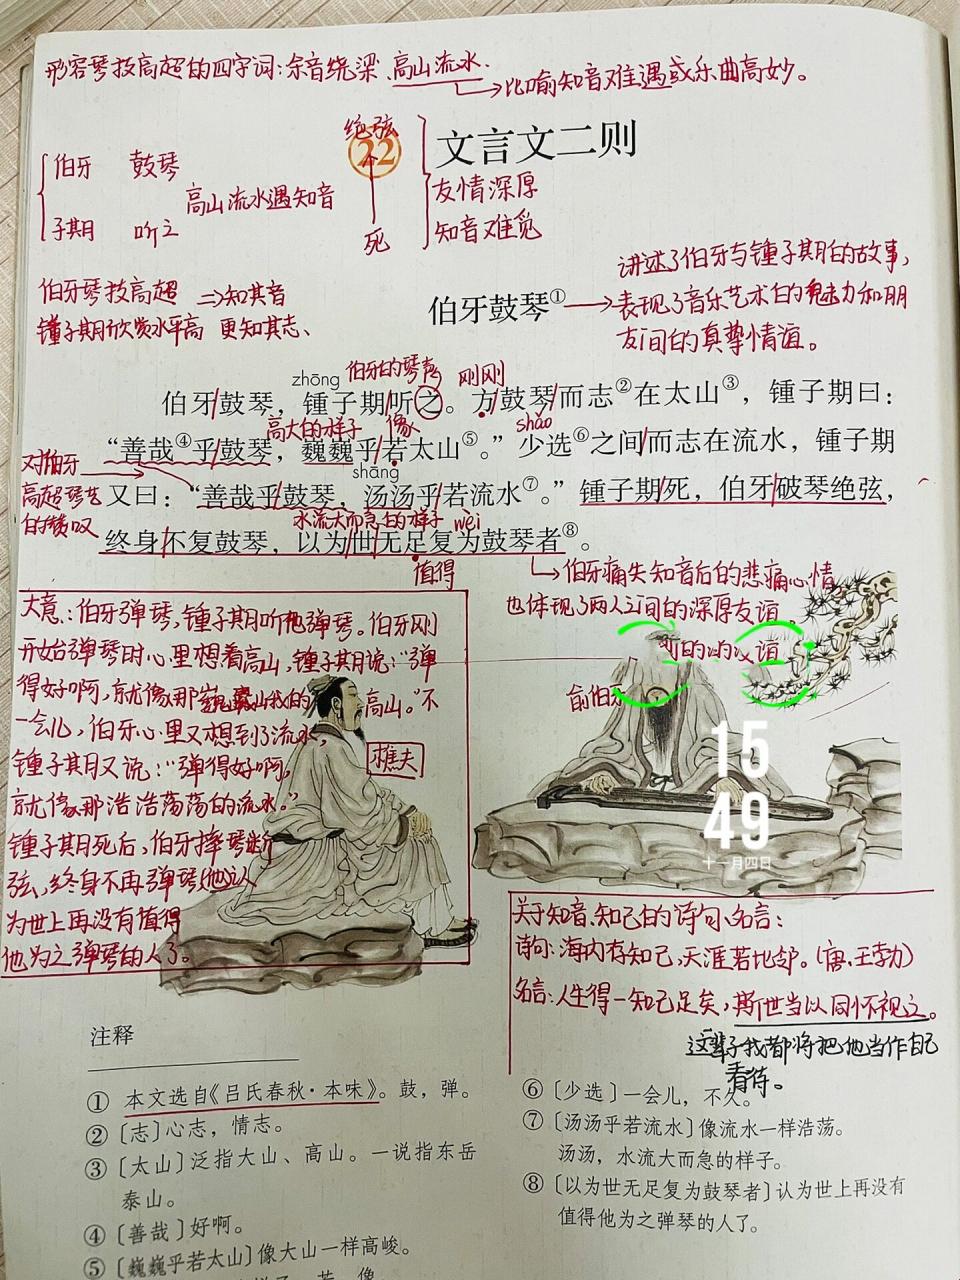 形容琴技高超的四字词:余音绕梁、高山流水.
比喻知音难遇或乐曲高妙。
绝弦
22
文言文二则
伯牙 鼓琴
高山流水遇知音
子期 听之
死
友情深厚
知音难觅
伯牙琴技高超 ⇒知其音
锺子期欣赏水平高 更知其志、
讲述了伯牙与锺子期的故事,
伯牙鼓琴①
表现了音乐艺术的魅力和朋
友间的真挚情谊。
zhōng 伯牙的琴声 刚刚
伯牙鼓琴，锺子期听之。方鼓琴而志②在太山③，锺子期曰：
高大的样子 像 shǎo
“善哉④乎鼓琴，巍巍乎若太山⑤。”少选⑥之间而志在流水，锺子期
对伯牙
高超琴艺
的赞叹
shāng
又曰：“善哉乎鼓琴，汤汤乎若流水⑦。”锺子期死，伯牙破琴绝弦，
水流大而急的样子 wèi
终身不复鼓琴，以为世无足复为鼓琴者⑧。
值得
伯牙痛失知音后的悲痛心情
也体现了两人之间的深厚友谊
大意:伯牙弹琴,锺子期听他弹琴。伯牙刚
开始弹琴时心里想着高山,锺子期说:“弹
得好啊,就像那巍巍 的高山。”不
一会儿,伯牙心里又想到了流水,
锺子期又说:“弹得好啊,
就像那浩浩荡荡的流水。”
锺子期死后,伯牙摔琴断
弦,终身不再弹琴,他认
为世上再没有值得
他为之弹琴的人了。
樵夫
俞伯
15
49
十一月四日
关于知音、知己的诗句、名言:
诗句:海内存知己,天涯若比邻。(唐.王勃)
名言:人生得一知己足矣,斯世当以同怀视之。
这辈子我都将把他当作自己
看待。
注释
① 本文选自《吕氏春秋·本味》。鼓，弹。
②〔志〕心志，情志。
③〔太山〕泛指大山、高山。一说指东岳
泰山。
④〔善哉〕好啊。
⑤〔巍巍乎若太山〕像大山一样高峻。
若，像
⑥〔少选〕一会儿，不久。
⑦〔汤汤乎若流水〕像流水一样浩荡。
汤汤，水流大而急的样子。
⑧〔以为世无足复为鼓琴者〕认为世上再没有
值得他为之弹琴的人了。